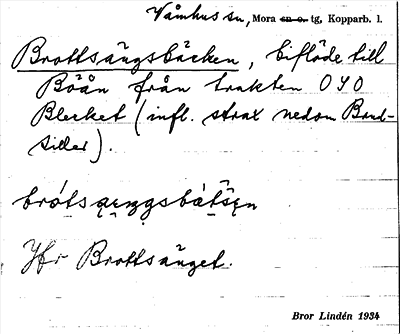 Våmhus sn, Mora sn o. tg, Kopparb. l.
Brottsängsbäcken, biflöde till
Böån från trakten OSO
Blecket (infl. strax nedom Bond-
siller).
Jfr Brottsänget.
Bror Lindén 1934